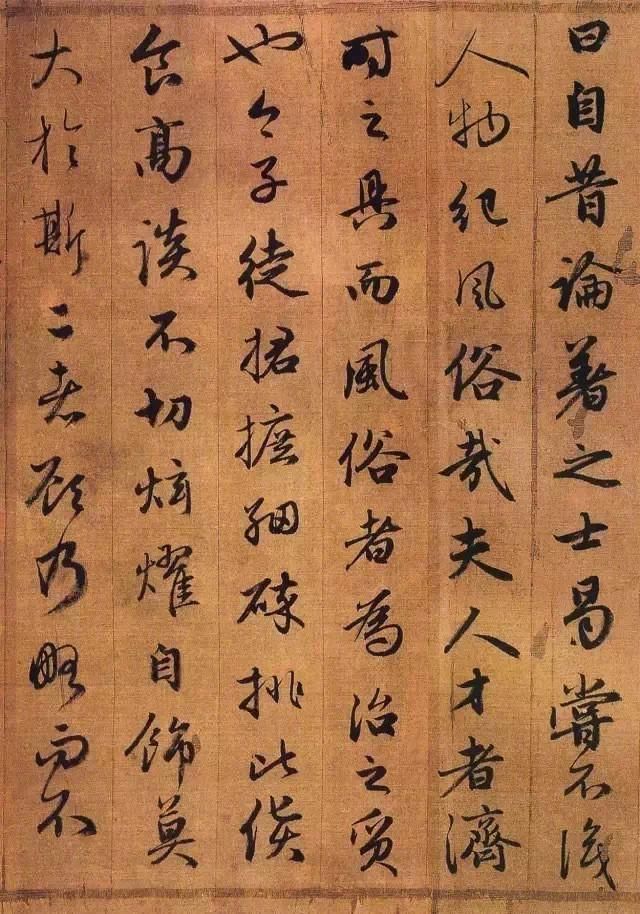 曰自昔論著之士曷嘗不
人物紀風俗哉夫人才者濟
時之具而風俗者為治之質
也今子徒捃摭細碎排比貨
食高談不切炫燿自飾莫
大於斯二者顧乃略而不